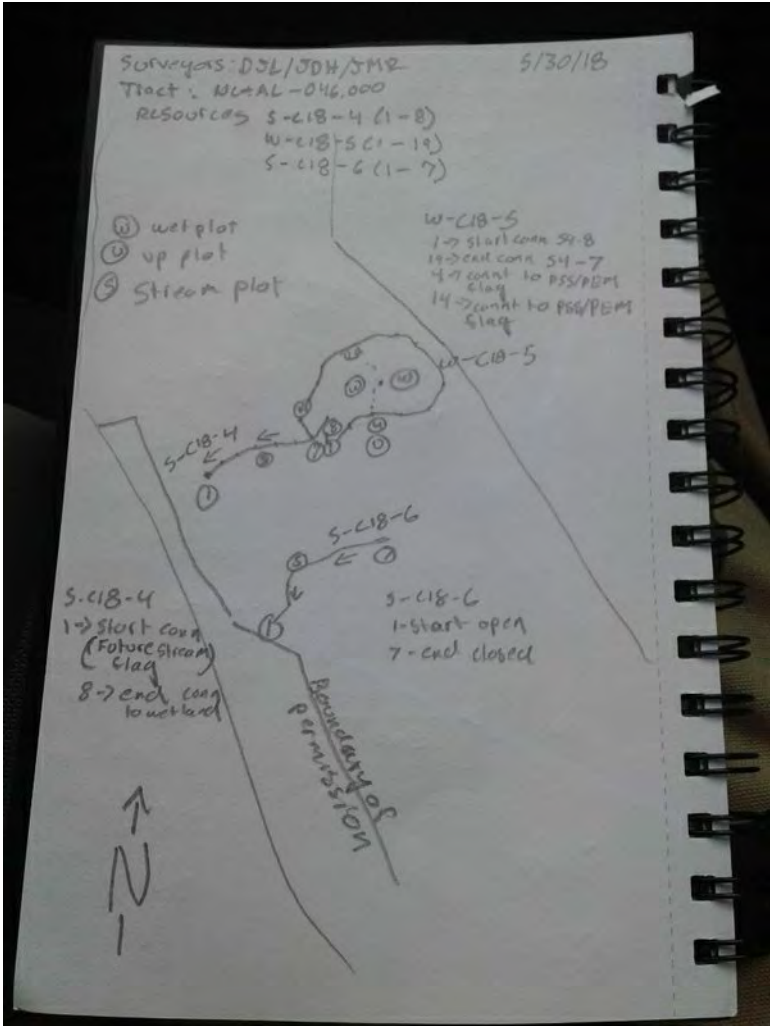 Surveyors: DJL/JDH/JMR 5/30/18
Tract: NC-AL-046.000
Resources S-C18-4 (1-8)
W-C18-5 (1-19)
S-C18-6 (1-7)
W wet plot
U up plot
S Stream plot
W-C18-5
1-> start conn S4-8
19-> end conn S4-7
4-> connt to PSS/PEM
flag
14-> connt to PSS/PEM
flag
W-C18-5
W
W
S-C18-4
S
1
U
S-C18-6
S
1
S-C18-4
1-> Start conn
(Future stream)
flag
8-> end conn
to wetland
S-C18-6
1-start open
7-end closed
Boundary of
permission
N